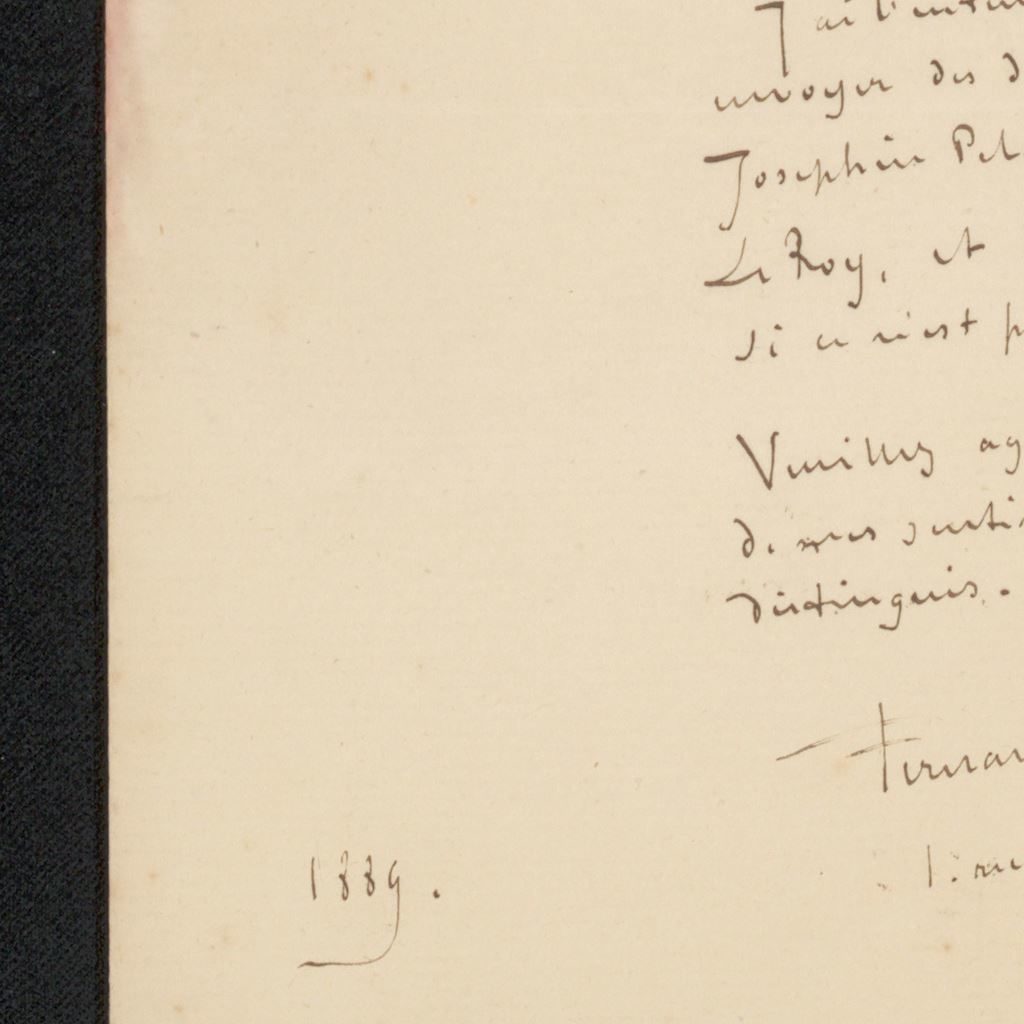 J'ai l'inten
envoyer des d
Josephin Pel
Le Roy, et
si ce n'est p
Veuillez ag
de mes senti
distingués.
Fernan
1. rue
1889.